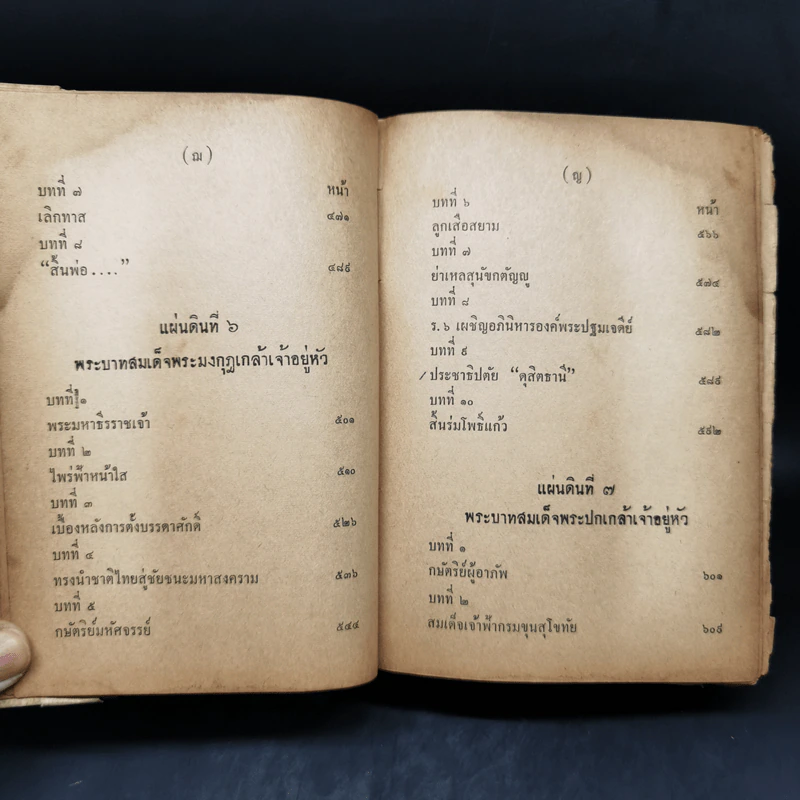 (ฌ)
บทที่ ๗ หน้า
เลิกทาส ๔๗๑
บทที่ ๘
“สิ้นพ่อ....” ๔๘๙
แผ่นดินที่ ๖
พระบาทสมเด็จพระมงกุฎเกล้าเจ้าอยู่หัว
บทที่ ๑
พระมหาธิรราชเจ้า ๕๐๑
บทที่ ๒
ไพร่ฟ้าหน้าใส ๕๑๐
บทที่ ๓
เบื้องหลังการตั้งบรรดาศักดิ์ ๕๒๖
บทที่ ๔
ทรงนำชาติไทยสู่ชัยชนะมหาสงคราม ๕๓๖
บทที่ ๕
กษัตริย์มหัศจรรย์ ๕๔๔
(ญ)
บทที่ ๖ หน้า
ลูกเสือสยาม ๕๖๖
บทที่ ๗
ย่าเหลสุนัขกตัญญู ๕๗๔
บทที่ ๘
ร.๖ เผชิญอภินิหารองค์พระปฐมเจดีย์ ๕๘๒
บทที่ ๙
ประชาธิปตัย “ดุสิตธานี” ๕๘๙
บทที่ ๑๐
สิ้นร่มโพธิ์แก้ว ๕๙๒
แผ่นดินที่ ๗
พระบาทสมเด็จพระปกเกล้าเจ้าอยู่หัว
บทที่ ๑
กษัตริย์ผู้อาภัพ ๖๐๑
บทที่ ๒
สมเด็จเจ้าฟ้ากรมขุนสุโขทัย ๖๐๙